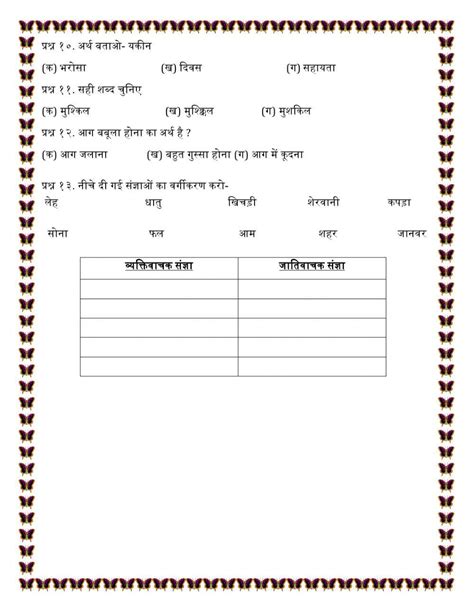 प्रश्न १०. अर्थ बताओ- यकीन
(क) भरोसा (ख) दिवस (ग) सहायता
प्रश्न ११. सही शब्द चुनिए
(क) मुश्किल (ख) मुश्क्लि (ग) मुशकिल
प्रश्न १२. आग बबूला होना का अर्थ है ?
(क) आग जलाना (ख) बहुत गुस्सा होना (ग) आग में कूदना
प्रश्न १३. नीचे दी गई संज्ञाओं का वर्गीकरण करो-
लेह धातु खिचड़ी शेरवानी कपड़ा
सोना फल आम शहर जानवर
व्यक्तिवाचक संज्ञा जातिवाचक संज्ञा